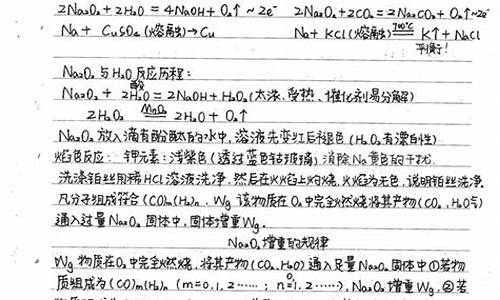 2Na₂O₂ + 2H₂O = 4NaOH + O₂↑ ~ 2e⁻ 2Na₂O₂ + 2CO₂ = 2Na₂CO₃ + O₂↑ ~ 2e⁻
Na + CuSO₄ (熔融) → Cu Na + KCl (熔融) 700℃ K↑ + NaCl
平衡!
Na₂O₂ 与 H₂O 反应历程:
Na₂O₂ + 2H₂O = 2NaOH + H₂O₂ (太浓、受热、催化剂易分解)
2H₂O₂ MnO₂ 2H₂O + O₂↑
Na₂O₂ 放入滴有酚酞的水中, 溶液先变红后褪色 (H₂O₂ 有漂白性)
焰色反应: 钾元素: 浅紫色 (透过蓝色钴玻璃) 消除Na黄色的干扰
洗涤铂丝用稀HCl溶液洗净, 然后在火焰上灼烧, 火焰为无色, 说明铂丝洗净.
凡分子组成符合 (CO)m(H₂)n, Wg 该物质在O₂中完全燃烧将其产物 (CO₂, H₂O气)
通入过量 Na₂O₂ 固体中, 固体增重Wg.
Na₂O₂ 增重的规律
Wg 物质在O₂中完全燃烧, 将其产物 (CO₂, H₂O) 通入足量 Na₂O₂ 固体中 ①若物
质组成为 (CO)m(H₂)n (m=0,1,2……; n=0,1,2……), Na₂O₂ 增重Wg. ②若